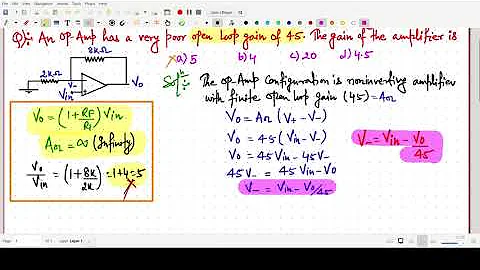 Q:: An OP-Amp has a very poor open loop gain of 45. The gain of the amplifier is
a) 5 b) 4 c) 20 d) 4.5
8kΩ
2kΩ
V-
Vin
Vo
Sol:: The op-Amp configuration is noninverting amplifier
with finite open loop gain (45) = AOL
Vo = (1+RF/R1) Vin
AOL = ∞ (Infinity)
Vo/Vin = (1+8k/2k) = 1+4 = 5
Vo = AOL (V+ - V-)
Vo = 45 (Vin - V-)
Vo = 45Vin - 45V-
45V- = 45Vin - Vo
V- = Vin - Vo/45
V- = Vin - Vo/45